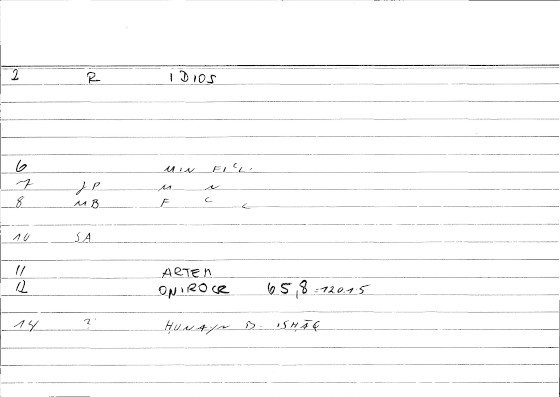 2 R IDIOS
6 MIN FICL.
7 JP M N
8 MB F C L
10 SA
11 ARTEM
12 ONIROCR 65,8 = 120.15
14 ? HUNAYN B. ISHĀQ